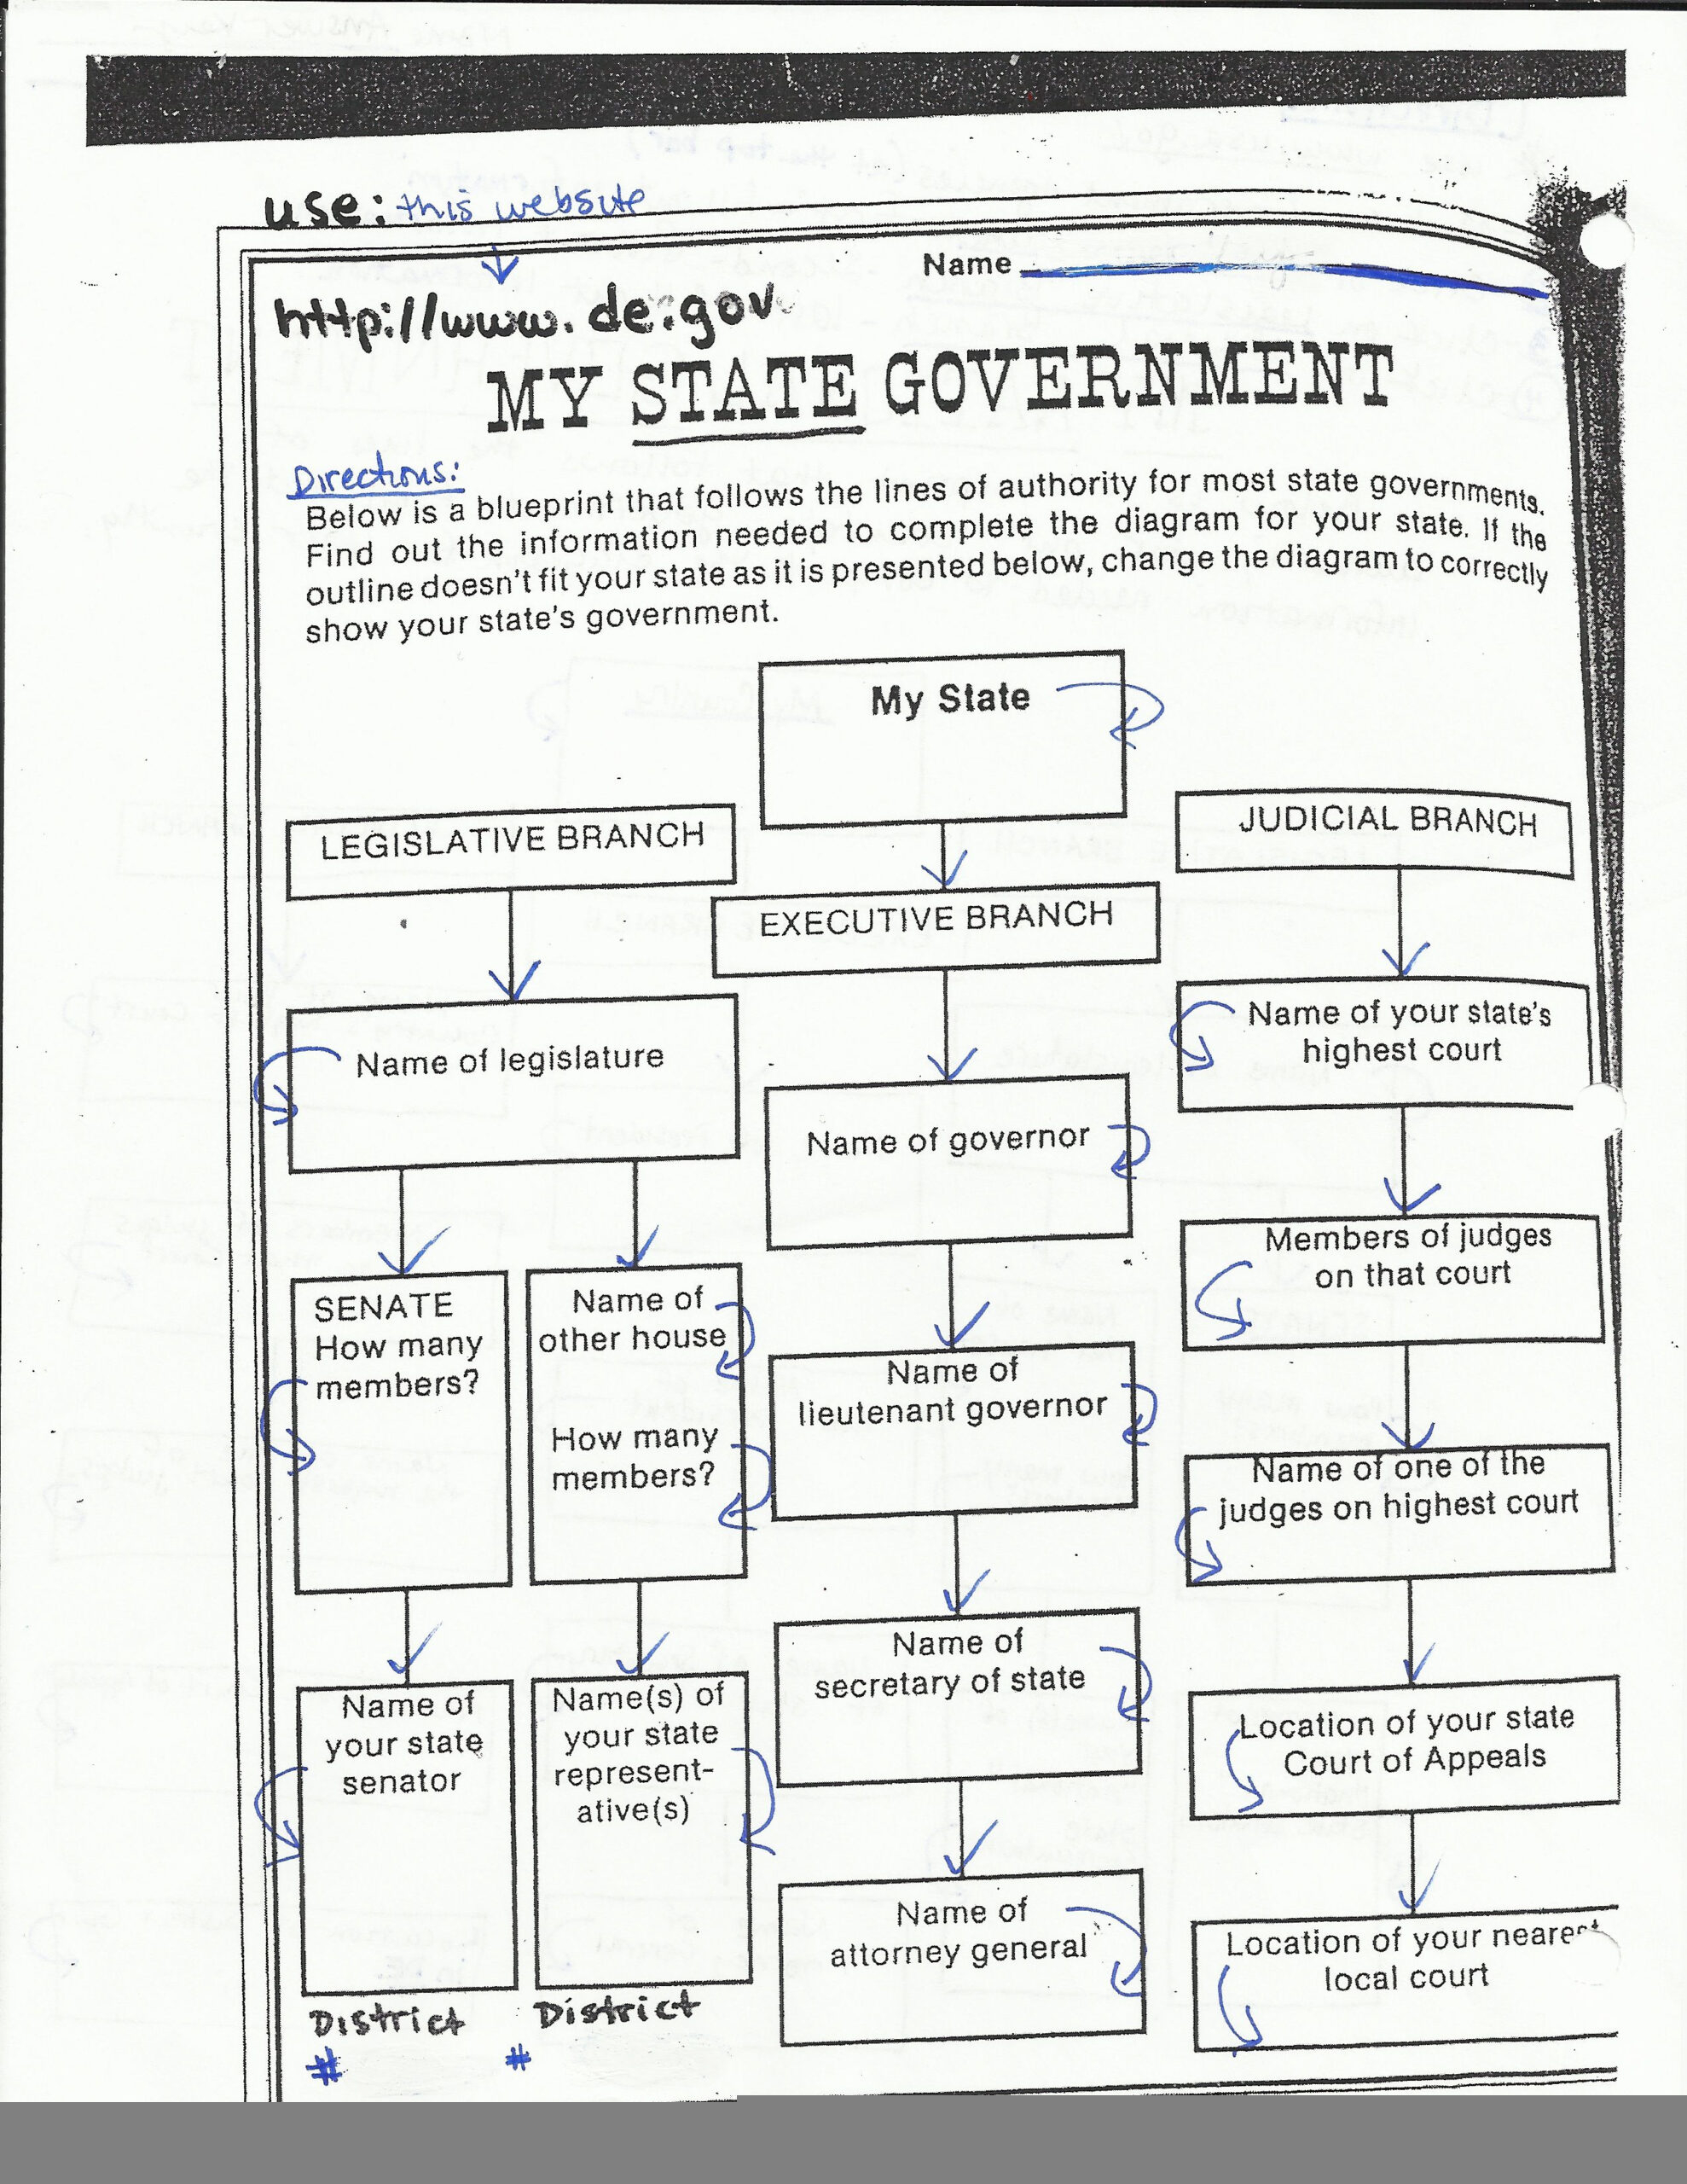 use: this website
Name
http://www.de.gov
MY STATE GOVERNMENT
Directions:
Below is a blueprint that follows the lines of authority for most state governments.
Find out the information needed to complete the diagram for your state. If the
outline doesn't fit your state as it is presented below, change the diagram to correctly
show your state's government.
My State
LEGISLATIVE BRANCH
JUDICIAL BRANCH
EXECUTIVE BRANCH
Name of legislature
Name of your state's
highest court
Name of governor
Members of judges
on that court
SENATE
How many
members?
Name of
other house
How many
members?
Name of
lieutenant governor
Name of one of the
judges on highest court
Name of
secretary of state
Name of
your state
senator
Name(s) of
your state
represent-
ative(s)
Location of your state
Court of Appeals
Name of
attorney general
Location of your nearest
local court
District
#
District
#